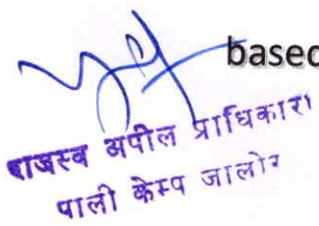 based
राजस्व अपील प्राधिकारी
पाली केम्प जालोर